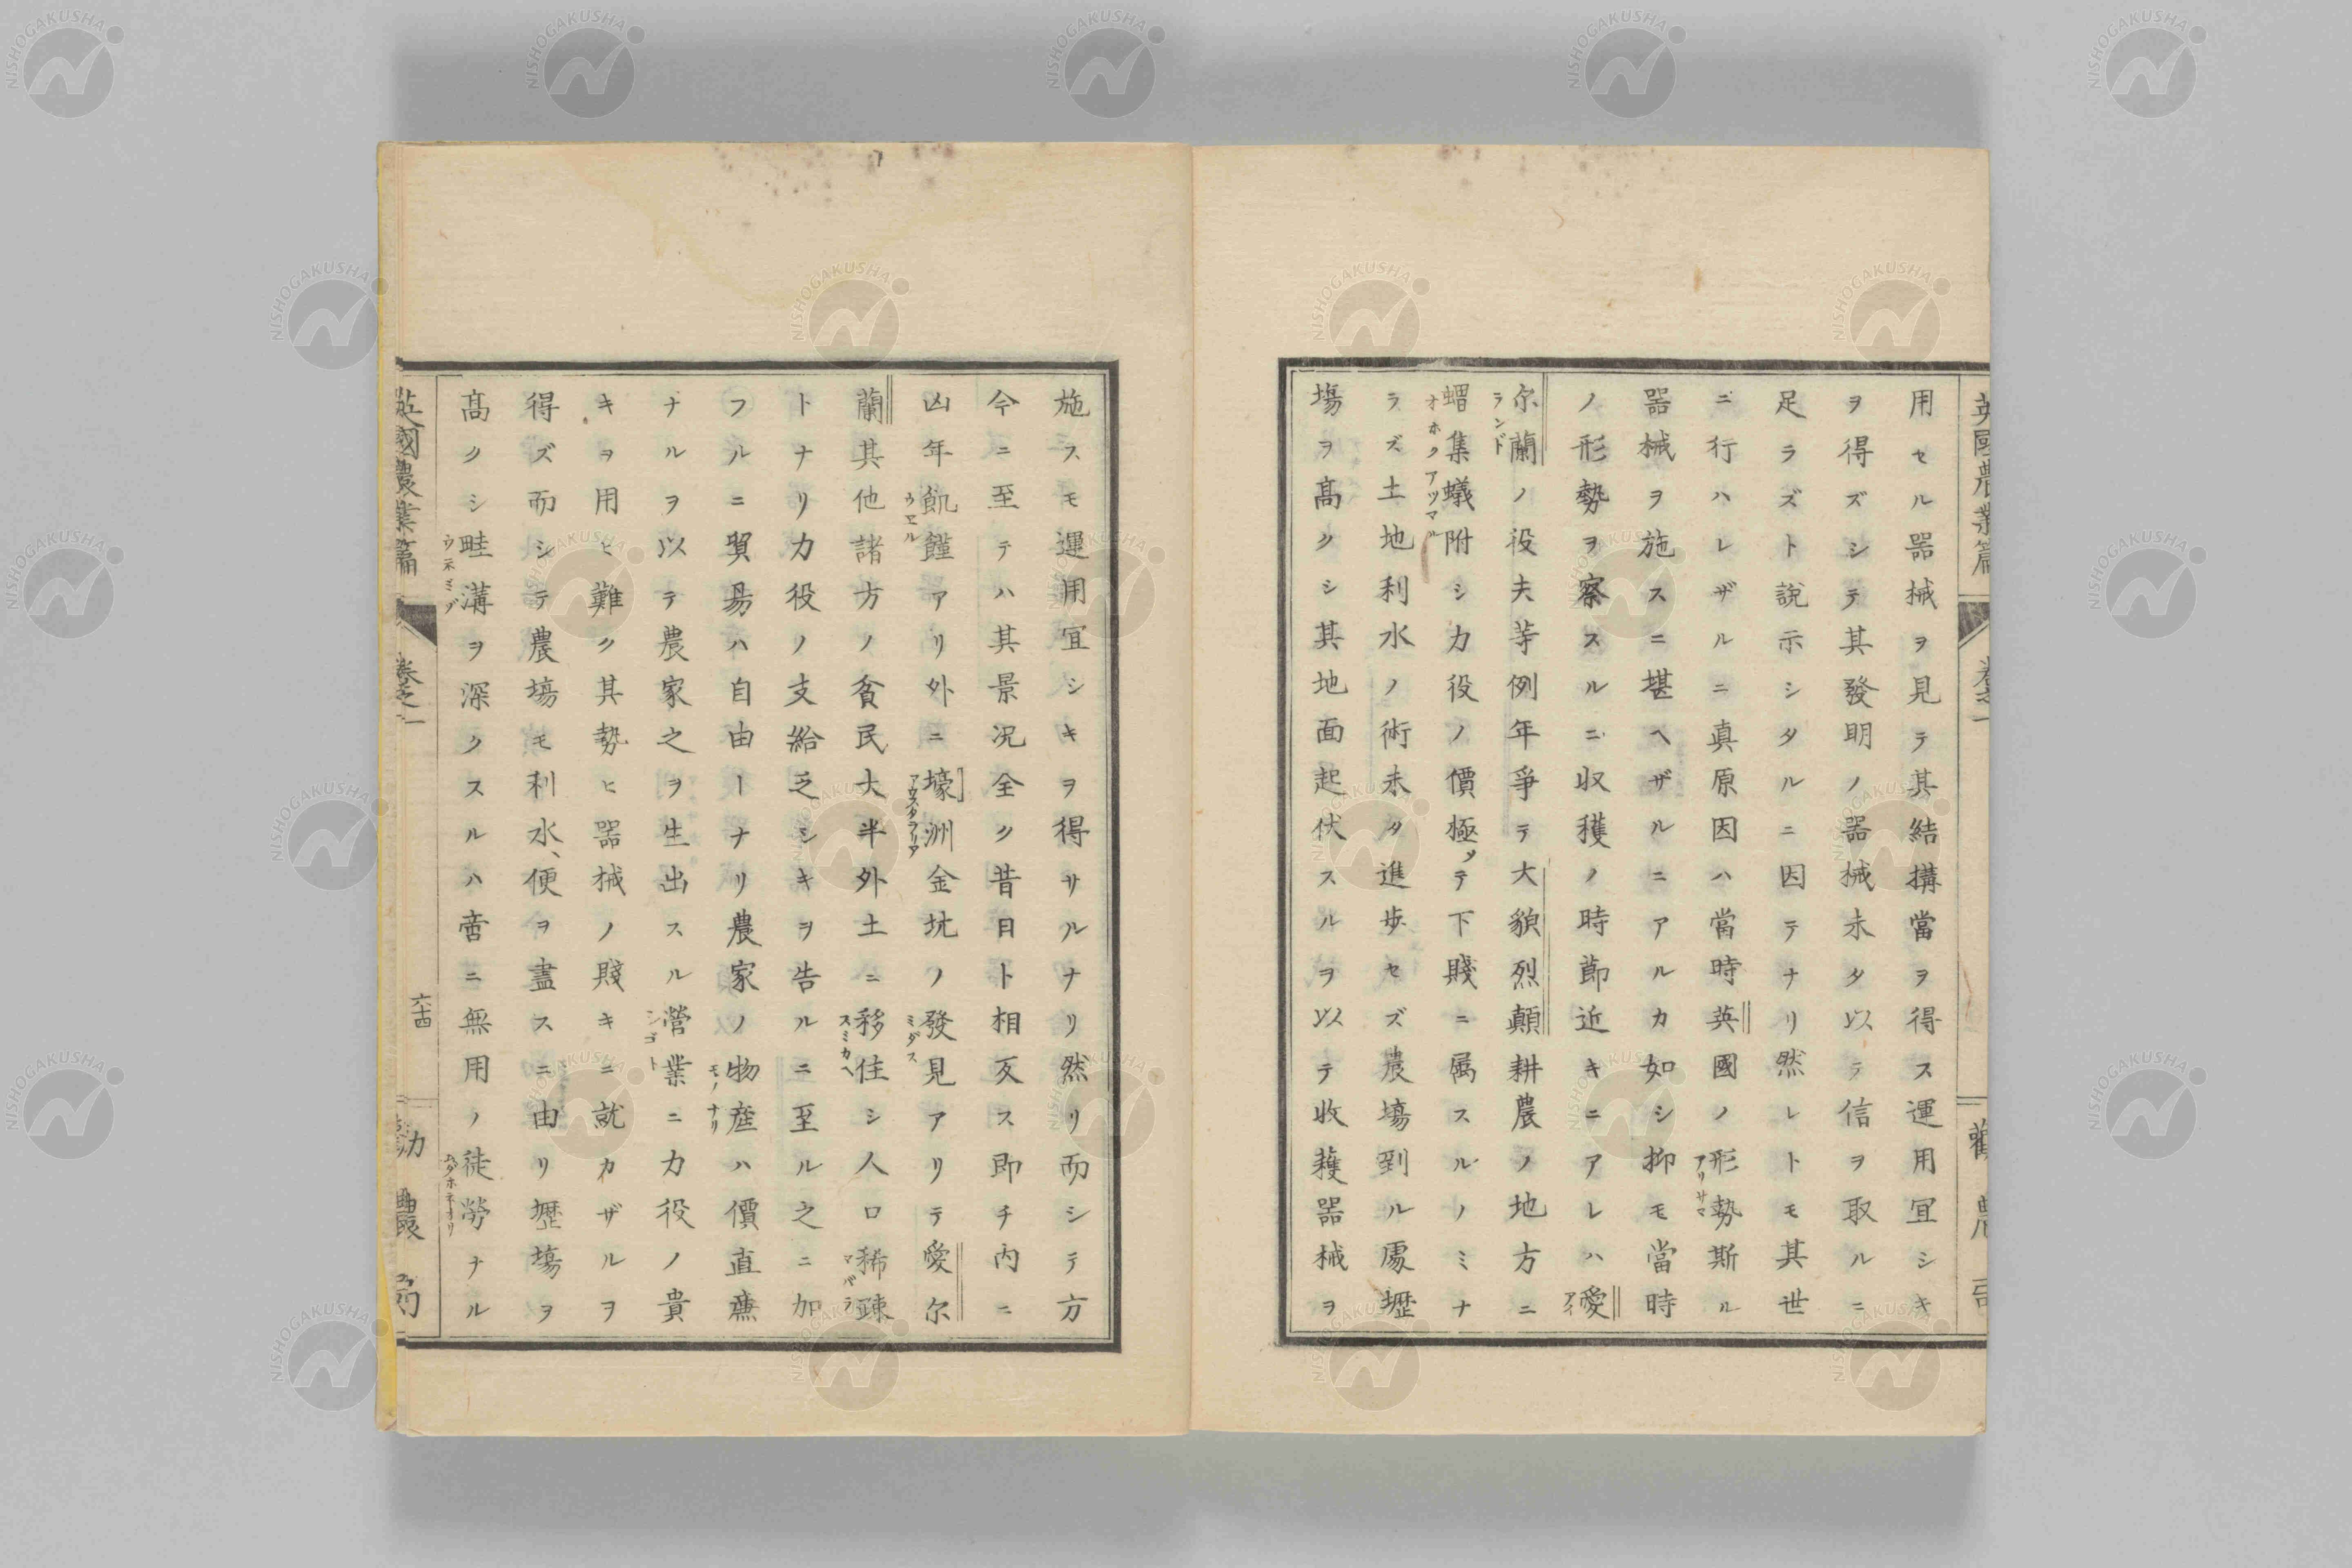 英國農業篇 卷之一 勸農局
用セル器械ヲ見テ其結搆當ヲ得ス運用宜シキ
ヲ得ズシテ其發明ノ器械未タ以テ信ヲ取ルニ
足ラズト說示シタルニ因テナリ然レトモ其世
ニ行ハレザルニ真原因ハ當時英國ノ形勢斯ル
アリサマ
器械ヲ施スニ堪ヘザルニアルカ如シ抑モ當時
ノ形勢ヲ察スルニ収穫ノ時節近キニアレハ愛
アイ
尔蘭ノ役夫等例年爭テ大貌烈顛耕農ノ地方ニ
ランド
蝟集蟻附シ力役ノ價極メテ下賤ニ属スルノミナ
オホクアツマル
ラズ土地利水ノ術未タ進歩セズ農塲到ル處壢
塲ヲ髙クシ其地面起伏スルヲ以テ收蘀器械ヲ
施スモ運用宜シキヲ得サルナリ然リ而シテ方
今ニ至テハ其景況全ク昔日ト相反ス即チ内ニ
凶年飢饉アリ外ニ壕洲金坑ノ發見アリテ愛尔
ウヱル
アウスタラリア
ミダス
蘭其他諸方ノ貧民大半外土ニ移住シ人口稀疎
スミカヘ
マバラ
トナリ力役ノ支給乏シキヲ告ルニ至ル之ニ加
フルニ貿昜ハ自由ーナリ農家ノ物産ハ價直廉
モノナリ
ナルヲ以テ農家之ヲ生出スル營業ニ力役ノ貴
シゴト
キヲ用ヒ難ク其勢ヒ器械ノ賤キニ就カザルヲ
得ズ而シテ農塲モ利水、便ヲ盡スニ由リ壢塲ヲ
髙クシ畦溝ヲ深クスルハ啻ニ無用ノ徒勞ナル
ウネミゾ
ムダホネオリ
英國農業篇 卷之一 六十四 勸農局
NISHOGAKUSHA